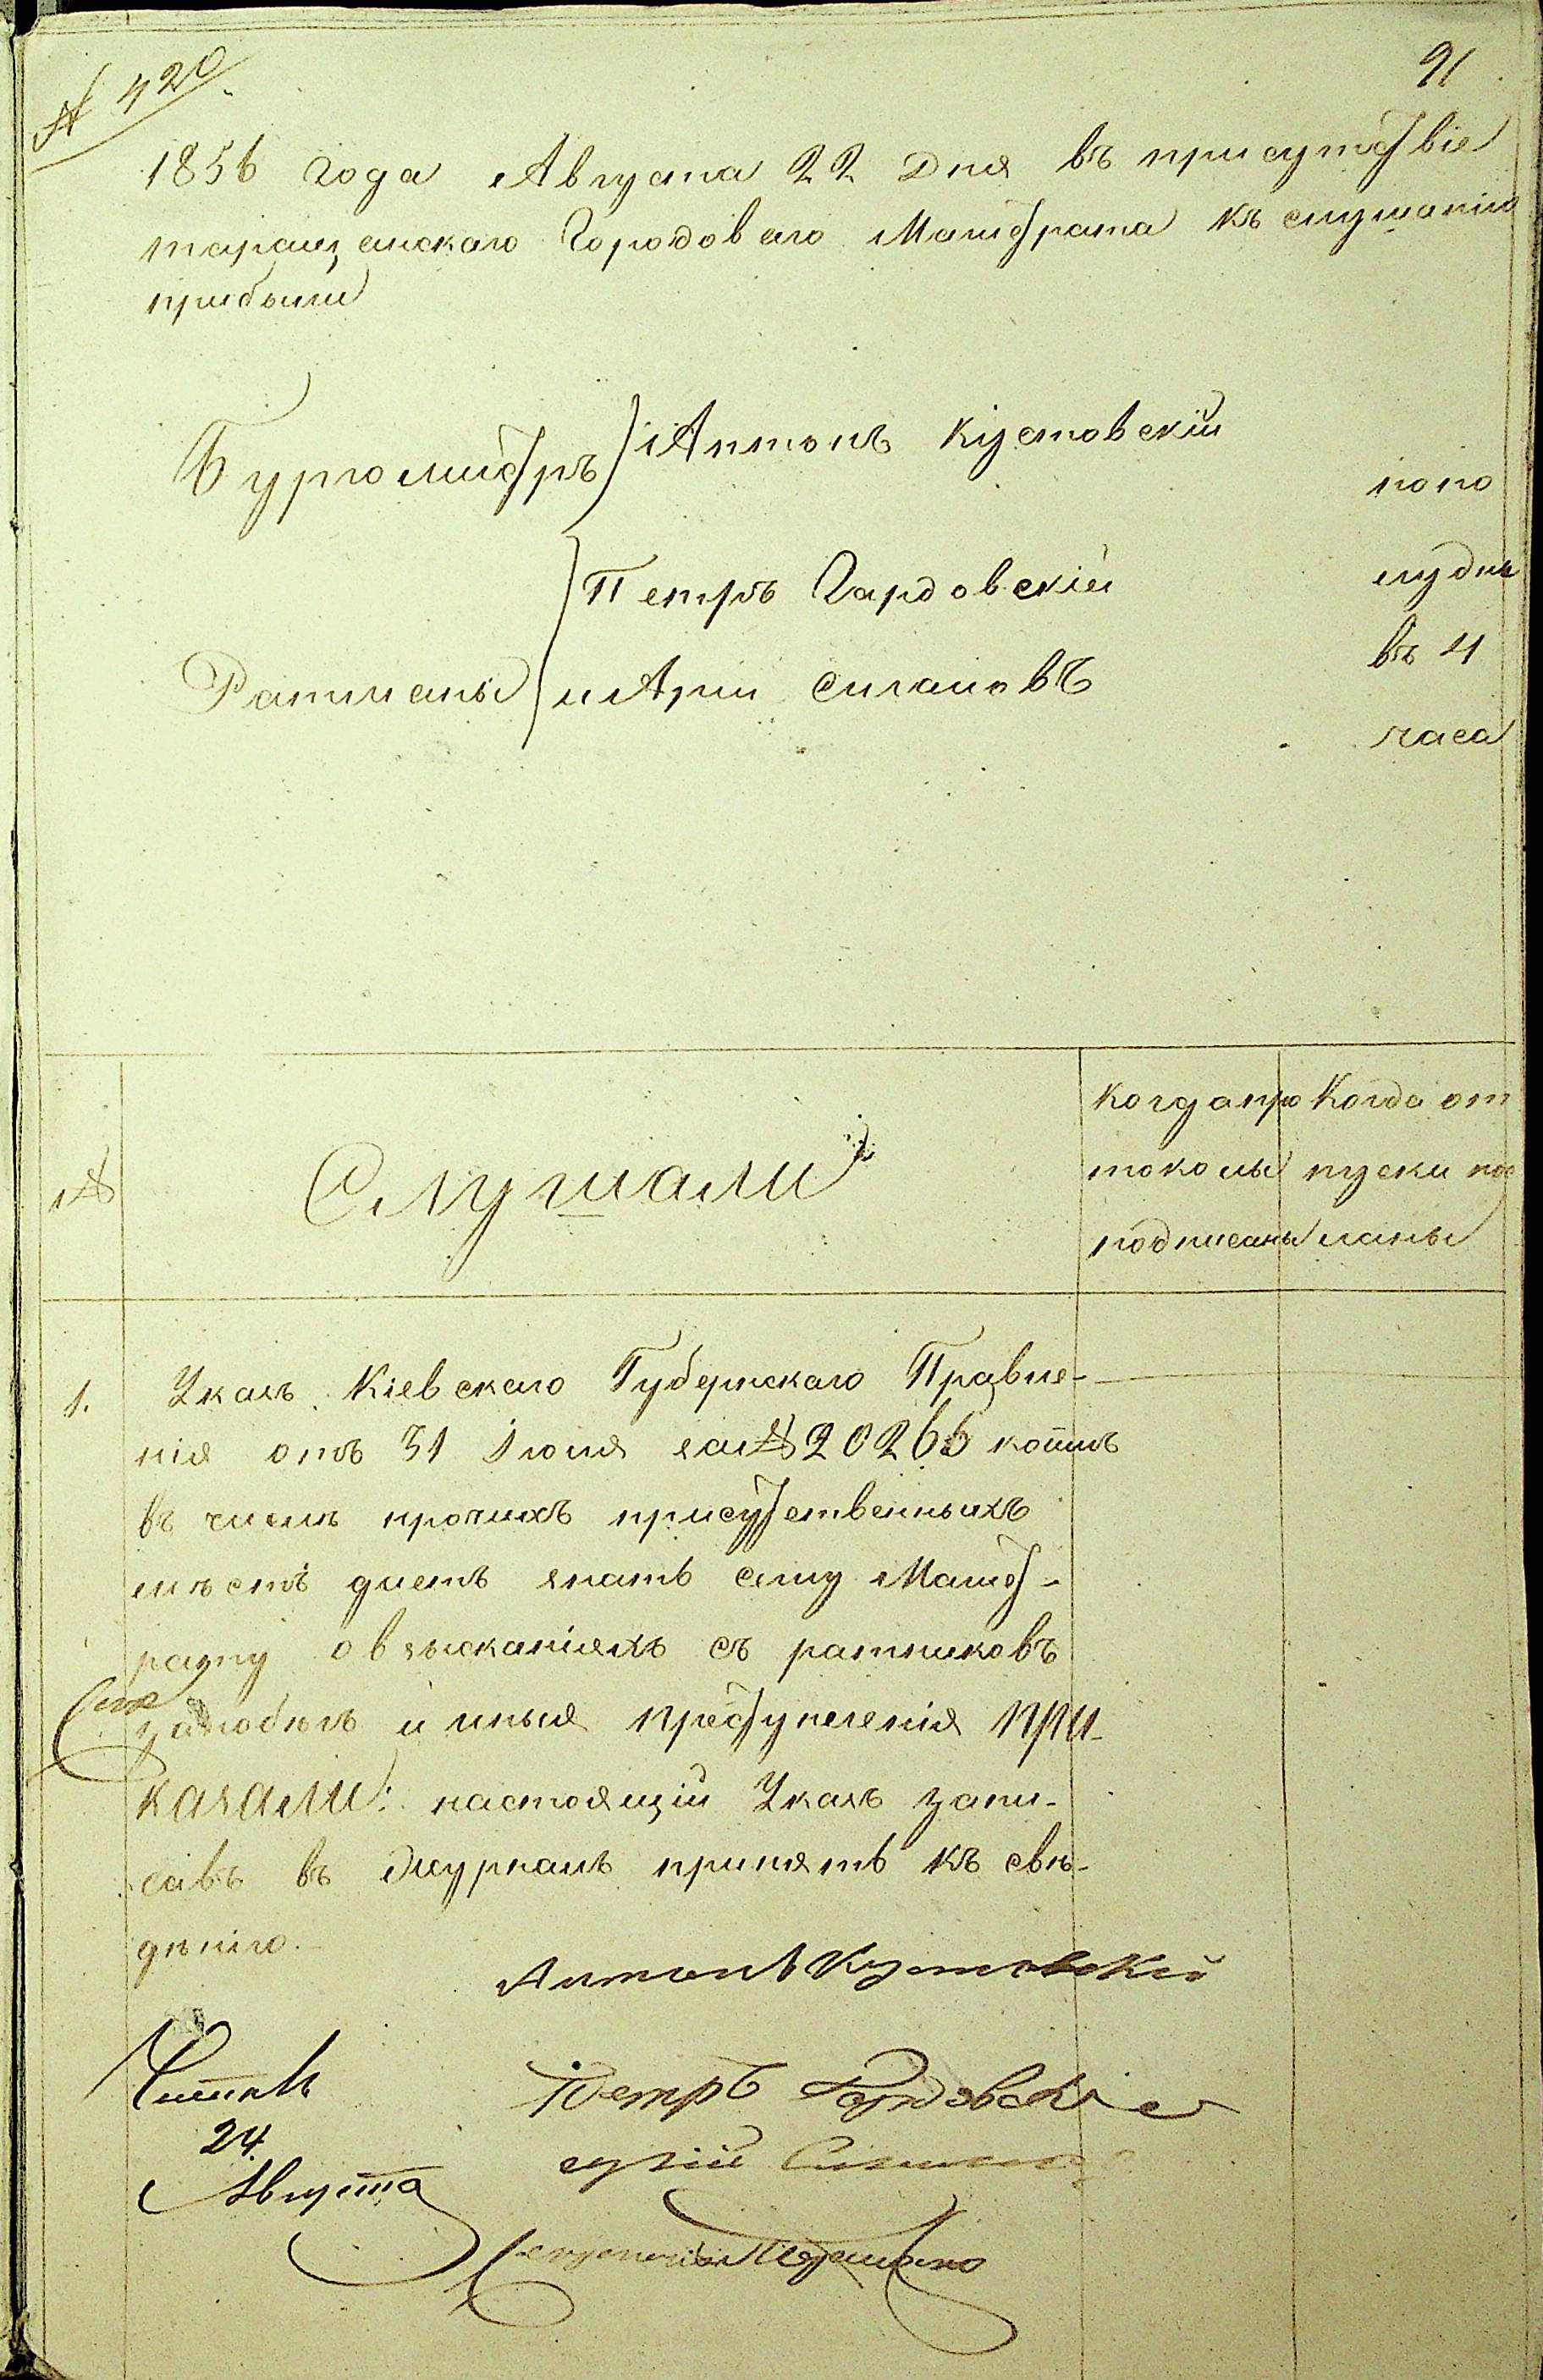 № 420.
91
1856 года Августа 22 дня въ присутствіе
таращанскаго Городоваго Магистрата къ слушанію
прибыли
Бургомистръ Антонъ Кустовскій
попо
лудни
въ 4
часа
Петръ Гардовскій
Ратманы и Арій
№
Слушали
когда про
токолы
подписаны
Когда от
пуски пос
ланы
1.
Указъ Кіевскаго Губернскаго Правле-
нія отъ 31 Іюля за № 20266 коимъ
въ числѣ прочихъ присутственныхъ
мѣстъ даетъ знать сему Магист-
рату о взысканіяхъ съ ратниковъ
за побѣгъ и иныя преступленія при-
казали: настоящій Указъ запи-
савъ въ журналъ принять къ свѣ-
дѣнію.
Антонъ Кустовскій
Петръ Гардовскій
Читалъ
24
Августа